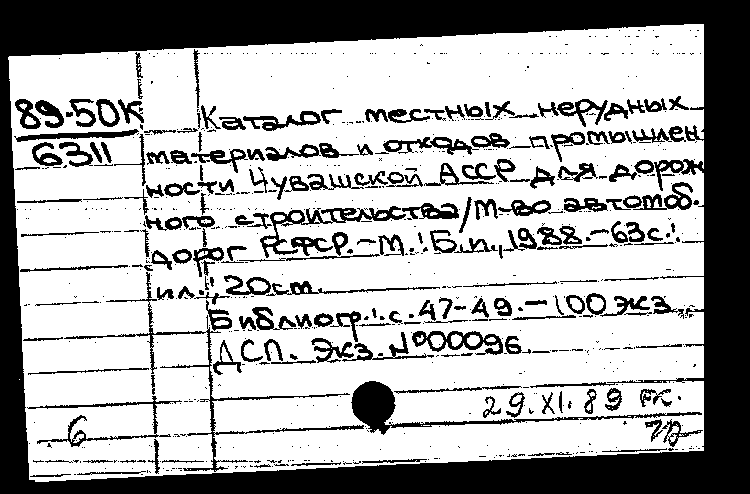 89-50К
6311
Каталог местных нерудных
материалов и отходов промышлен
ности Чувашской АССР для дорож
ного строительства/М-во автомоб.
дорог РСФСР.-М.:Б.и.,1988.-63с.:
ил.;20см.
Библиогр.:с.47-49.-100экз
ДСП. Экз.№00096.
29.XI.89
6